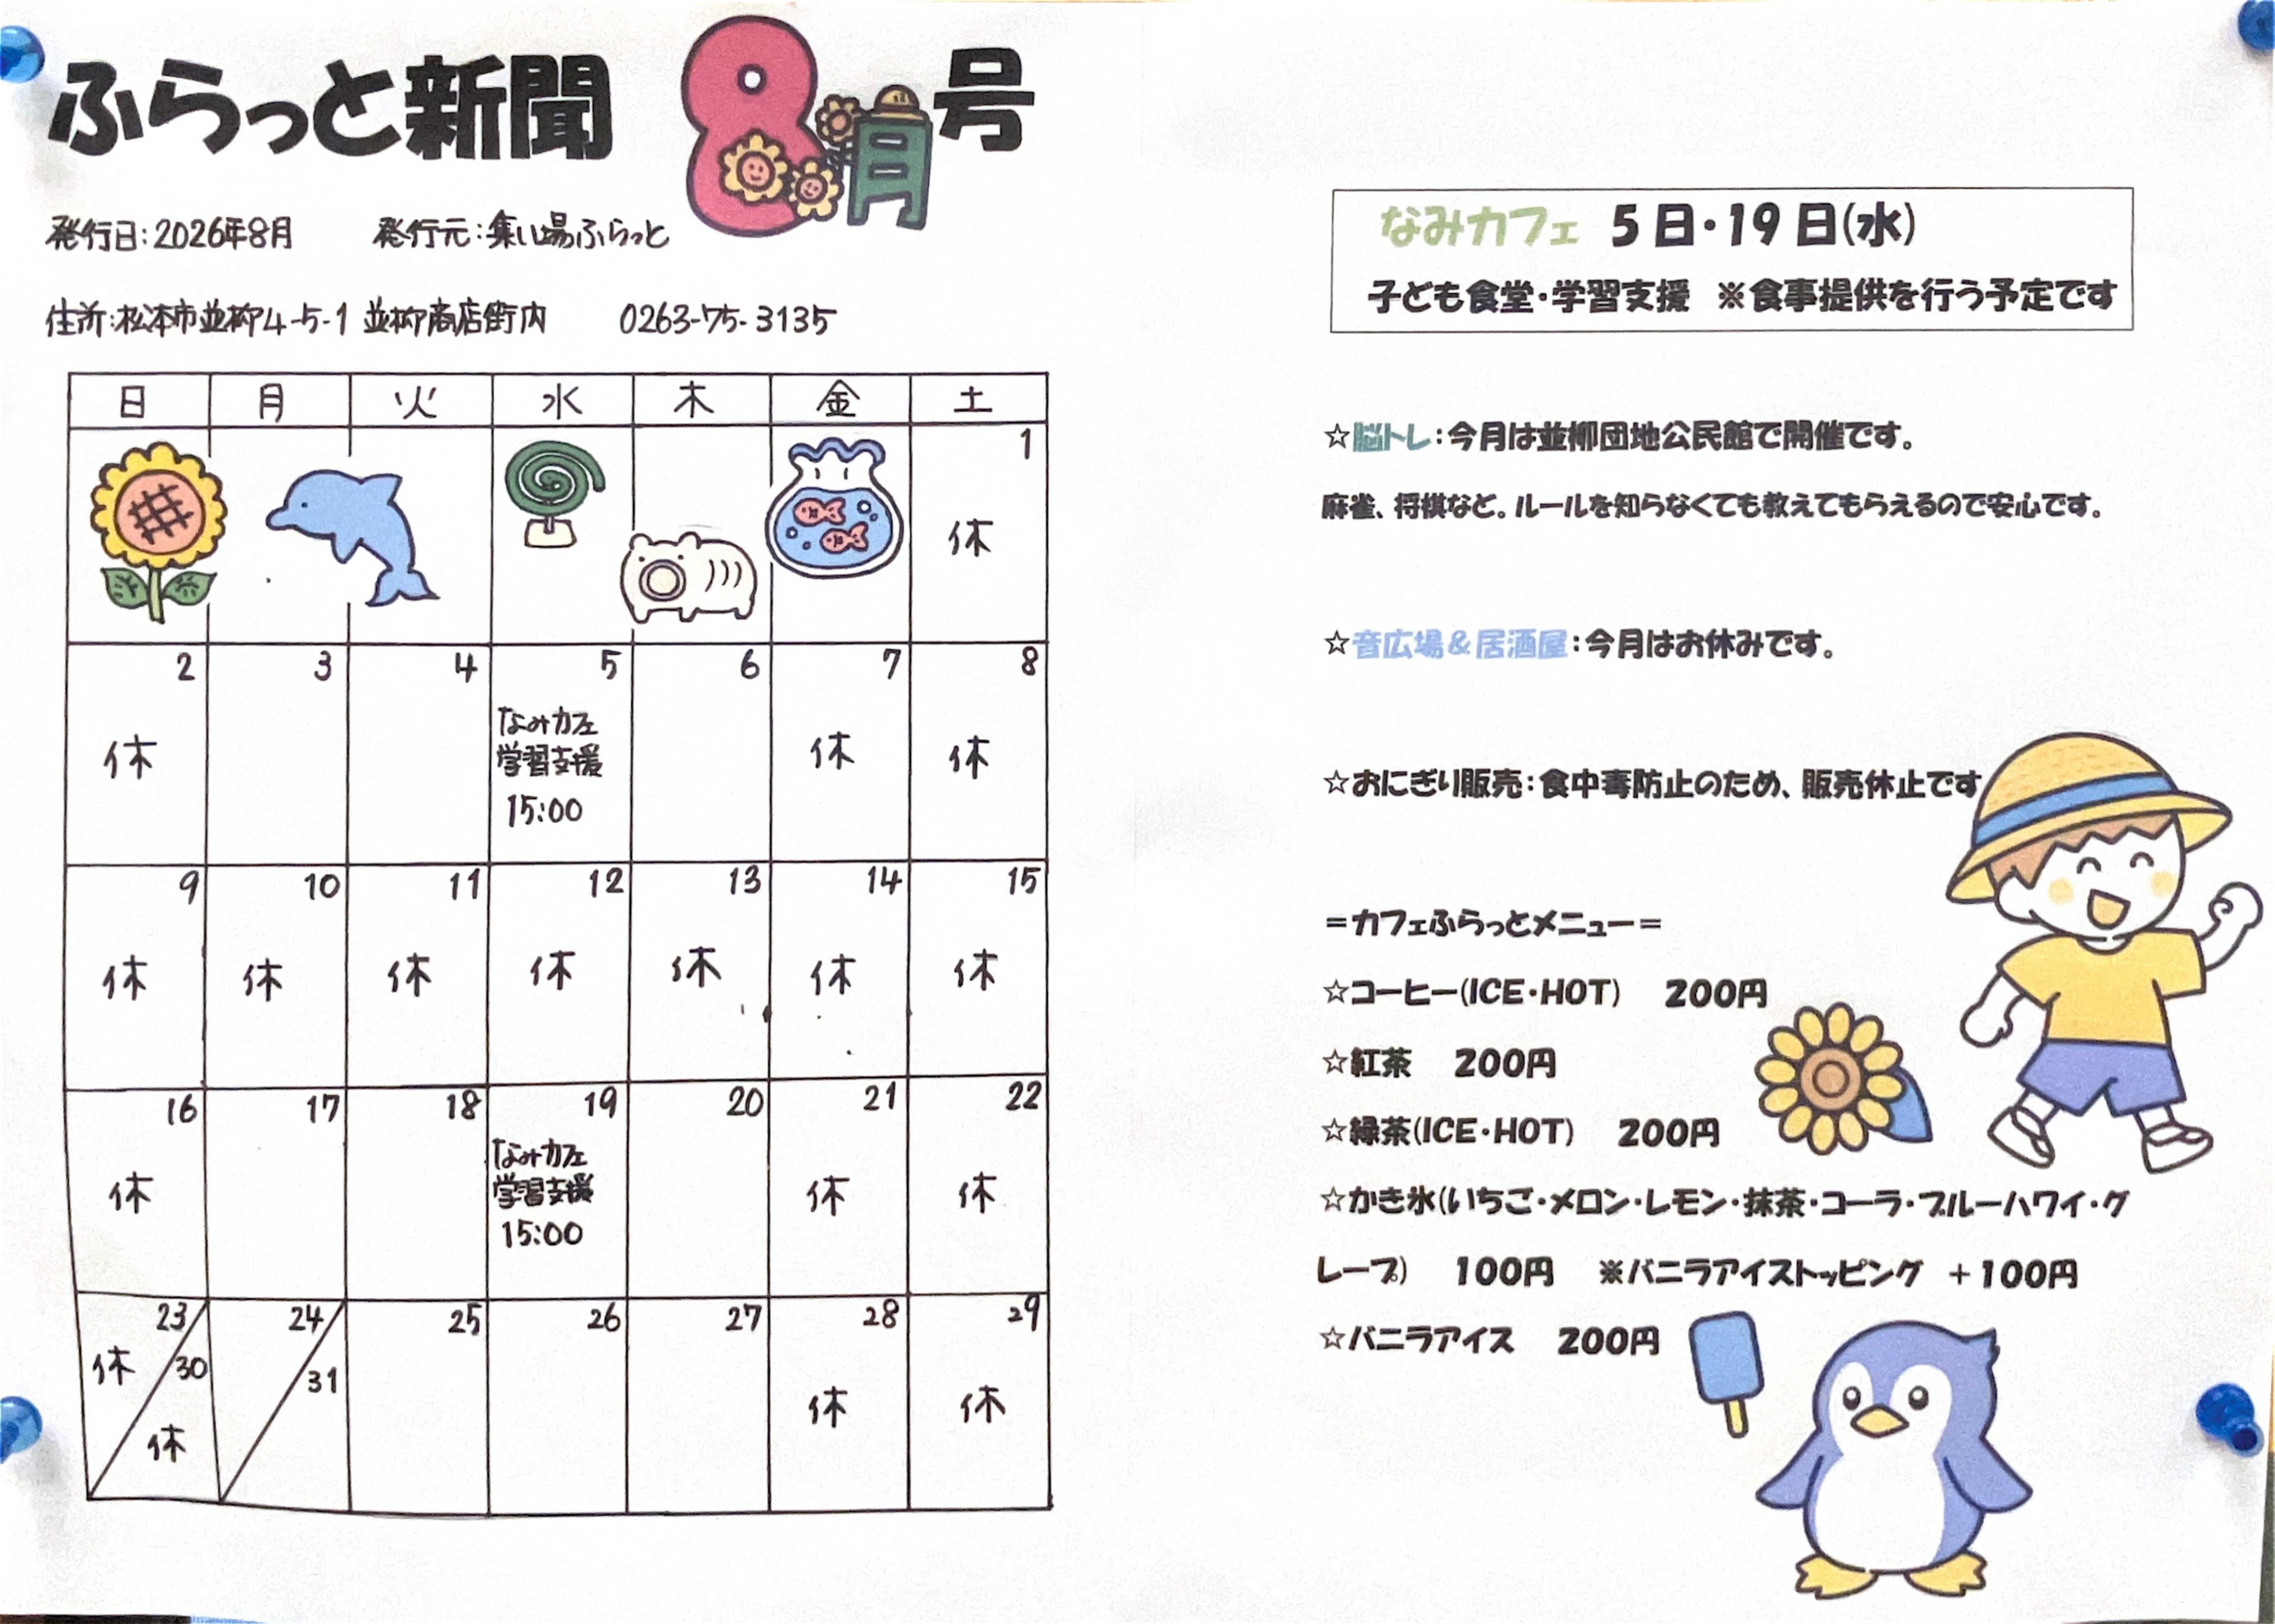 ふらっと新聞 8月号
発行日：2026年8月 発行元：集い場ふらっと
住所：松本市並柳4-5-1 並柳商店街内 0263-75-3135
日 月 火 水 木 金 土
1
休
2 3 4 5 6 7 8
休 なみカフェ 学習支援 15:00 休 休
9 10 11 12 13 14 15
休 休 休 休 休 休 休
16 17 18 19 20 21 22
休 なみカフェ 学習支援 15:00 休 休
23 24 25 26 27 28 29
休 30 31
休 休 休
なみカフェ 5日・19日(水)
子ども食堂・学習支援 ※食事提供を行う予定です
☆脳トレ：今月は並柳団地公民館で開催です。
麻雀、将棋など。ルールを知らなくても教えてもらえるので安心です。
☆音広場＆居酒屋：今月はお休みです。
☆おにぎり販売：食中毒防止のため、販売休止です
＝カフェふらっとメニュー＝
☆コーヒー(ICE・HOT) 200円
☆紅茶 200円
☆緑茶(ICE・HOT) 200円
☆かき氷(いちご・メロン・レモン・抹茶・コーラ・ブルーハワイ・グ
レープ) 100円 ※バニラアイストッピング ＋100円
☆バニラアイス 200円